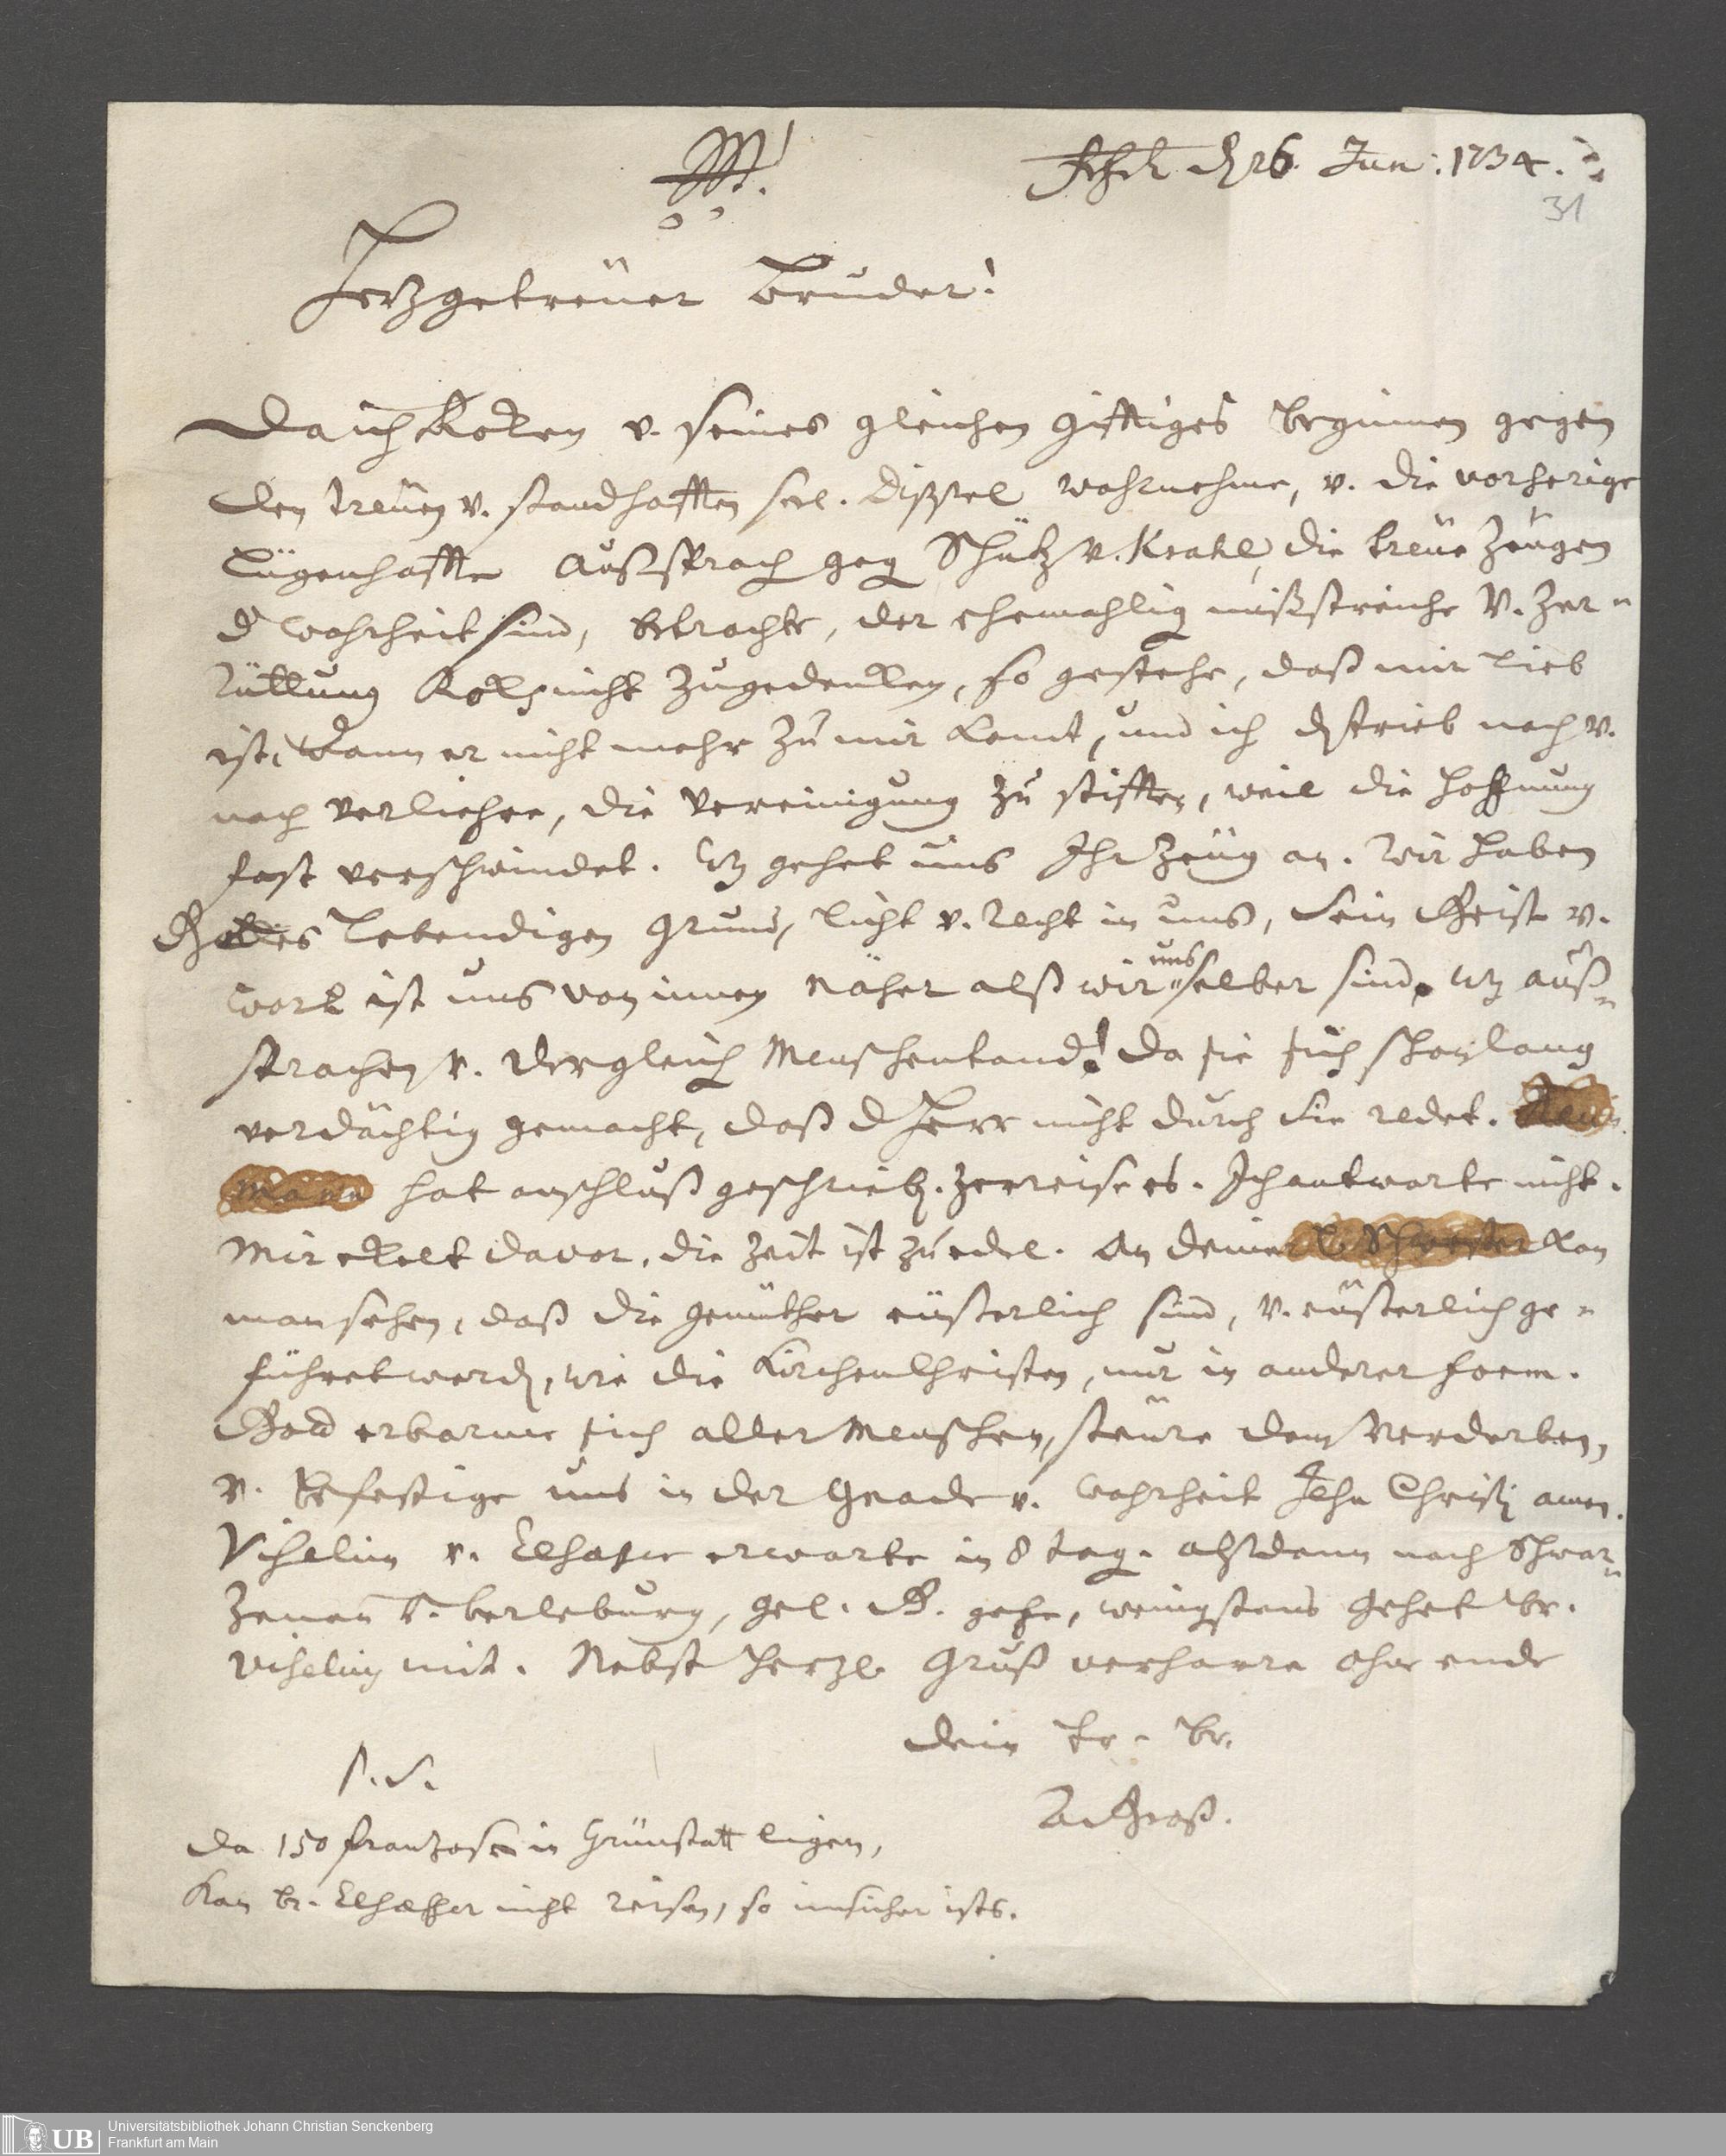 Frfrt d 26. Jun: 1734.
31
Hertzgetreuer Bruder!
Da ich Kolen v. seines gleichen gifftiges beginnen gegen
den treuen v. standhafften sel. Dippel wahrnehme, v. die vorherige
Lügenhaffte Außsprach geg Schütz v. Krahl, die treue Zeugen
d Wahrheit sind, betrachte, der ehemahlig mißstreiche v. Zer-
rüttung nicht zugedencken, so gestehe, daß mir lieb
ist, wann er nicht mehr zu mir komt, und ich trieb nach v.
nach verliehre, die Vereinigung zu stifften, weil die Hoffnung
fast verschwindet. Was gehet uns Ihr Zeug an. Wir haben
Gottes Lebendigen Grund, licht v. recht in uns, sein Geist v.
Wort ist uns von innen näher alß wir uns selber sind. Was auß-
sprachen v. dergleich Menschentand! da sie sich schon lang
verdächtig gemacht, daß d Herr nicht durch sie redet.
mann hat anschluß geschrieb. zerreise es. Ich antworte nicht.
Mir ekelt davor, die Zeit ist zu edel. An deiner l. Schwester kan
man sehen, daß die gemüther eüserlich sind, v. eüserlich ge-
führet werd, wie die Kirchen Christen, nur in anderer form.
Gott erbarme sich aller Menschen, steure dem Verderben,
v. befestige uns in der Gnade v. Wahrheit Jesu Christi amen.
v. Elsasser erwarte in 8 tag. alßdann nach Schwar-
zenau v. berleburg, gel. G. gehe, wenigstens gehet br.
mit. Nebst hertzl. Gruß verharre ohne ende
Dein tr. br.
A. Groß.
P.S.
Da 150 frantzosen in Grünstatt ligen,
kan br. Elsasser nicht reisen, so unsicher ists.
Universitätsbibliothek Johann Christian Senckenberg
UB Frankfurt am Main